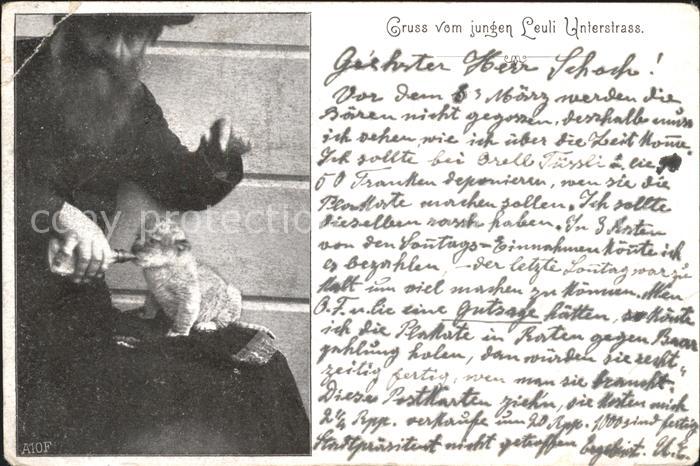 Gruss vom jungen Leuli Unterstrass.
Geehrter Herr Schoch!
Vor dem 3 März werden die
Bären nicht gegossen, desshalb muss
ich sehen, wie ich über die Zeit kome.
Ich sollte bei Orell Füssli u. Cie
50 Franken deponieren, wen sie die
Plakate machen sollen. Ich sollte
dieselben rasch haben. In 3 Raten
von den Sontags-Einnahmen könte ich
es bezahlen, der letzte Sontag war zu
kalt um viel machen zu können. Wen
O.F. u. Cie eine Gutsage hätten, so könte
ich die Plakate in Raten gegen Baar
zahlung holen, dan würden sie recht-
zeitig fertig, wen man sie braucht.
Diese Postkarten zieh'n, sie kosten mich
2¼ Rpp. verkaufe um 20 Rpp. 1000 sind fertig
Stadtpräsident nicht getroffen Ergebst.
A10F
copy protection